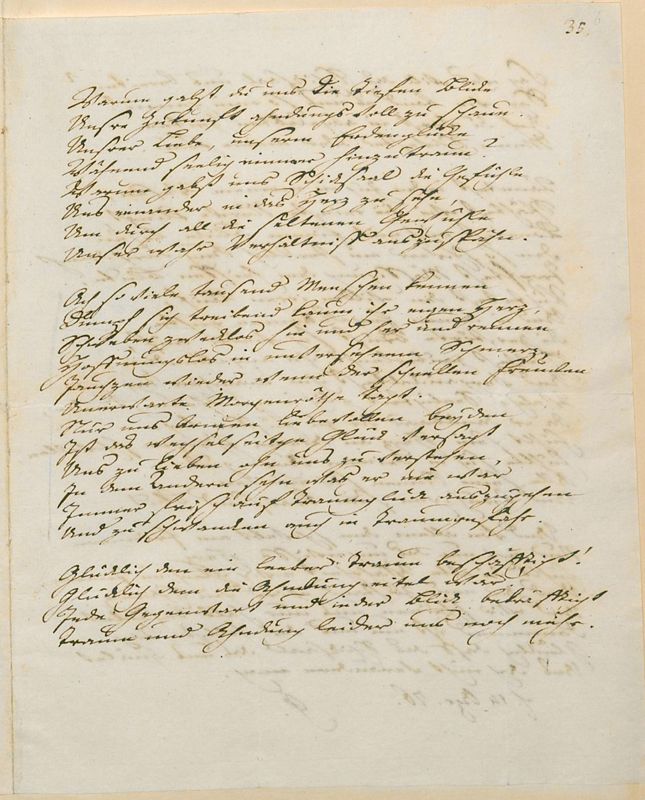 35.
Warum gabst du uns die Tiefen Blicke
Unsre Zukunft ahndungsvoll zu schaun
Unsrer Liebe, unserm Erdenglücke
Wähnend seelig nimmer hinzutraun?
Warum gabst uns Schicksaal die Gefühle
Uns einander in das Herz zu sehn,
Um durch all die seltenen Gewühle
Unser wahr Verhältniss auszuspähn.
Ach so viele tausend Menschen kennen
Dumpf sich treibend kaum ihr eigen Herz,
Schweben zwecklos hin und her und rennen
Hoffnungslos in unversehnem Schmerz,
Jauchzen wieder wenn der schnellen Freuden
Unerwarte Morgenröthe tagt.
Nur uns armen liebevollen beyden
Ist das wechselseitge Glück versagt
Uns zu lieben ohn uns zu verstehen,
In dem Andern sehn was er nie war
Immer frisch auf Traumglück auszugehen
Und zu schwancken auch in Traumgefahr.
Glücklich den ein leerer Traum beschäfftigt!
Glücklich dem die Ahndung eitel wär
Jede Gegenwart und ieder Blick bekräfftigt
Traum und Ahndung leider uns noch mehr.